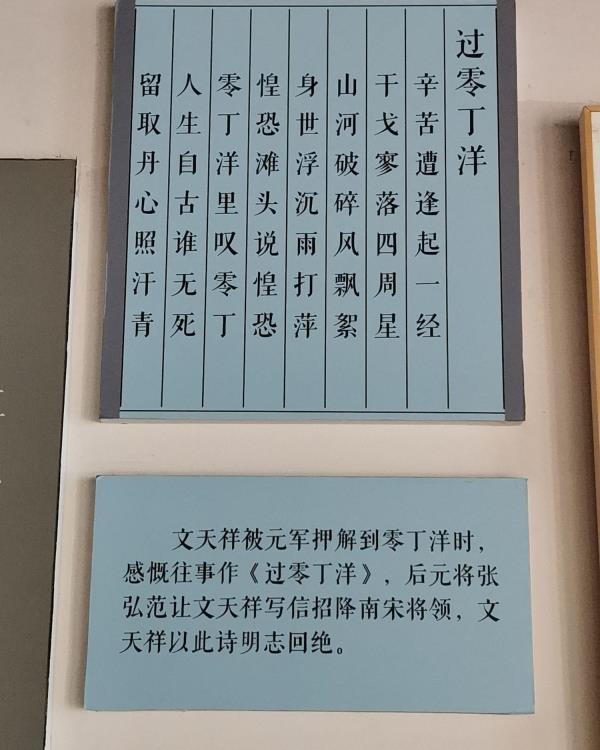 过零丁洋
辛苦遭逢起一经
干戈寥落四周星
山河破碎风飘絮
身世浮沉雨打萍
惶恐滩头说惶恐
零丁洋里叹零丁
人生自古谁无死
留取丹心照汗青
文天祥被元军押解到零丁洋时，
感慨往事作《过零丁洋》，后元将张
弘范让文天祥写信招降南宋将领，文
天祥以此诗明志回绝。